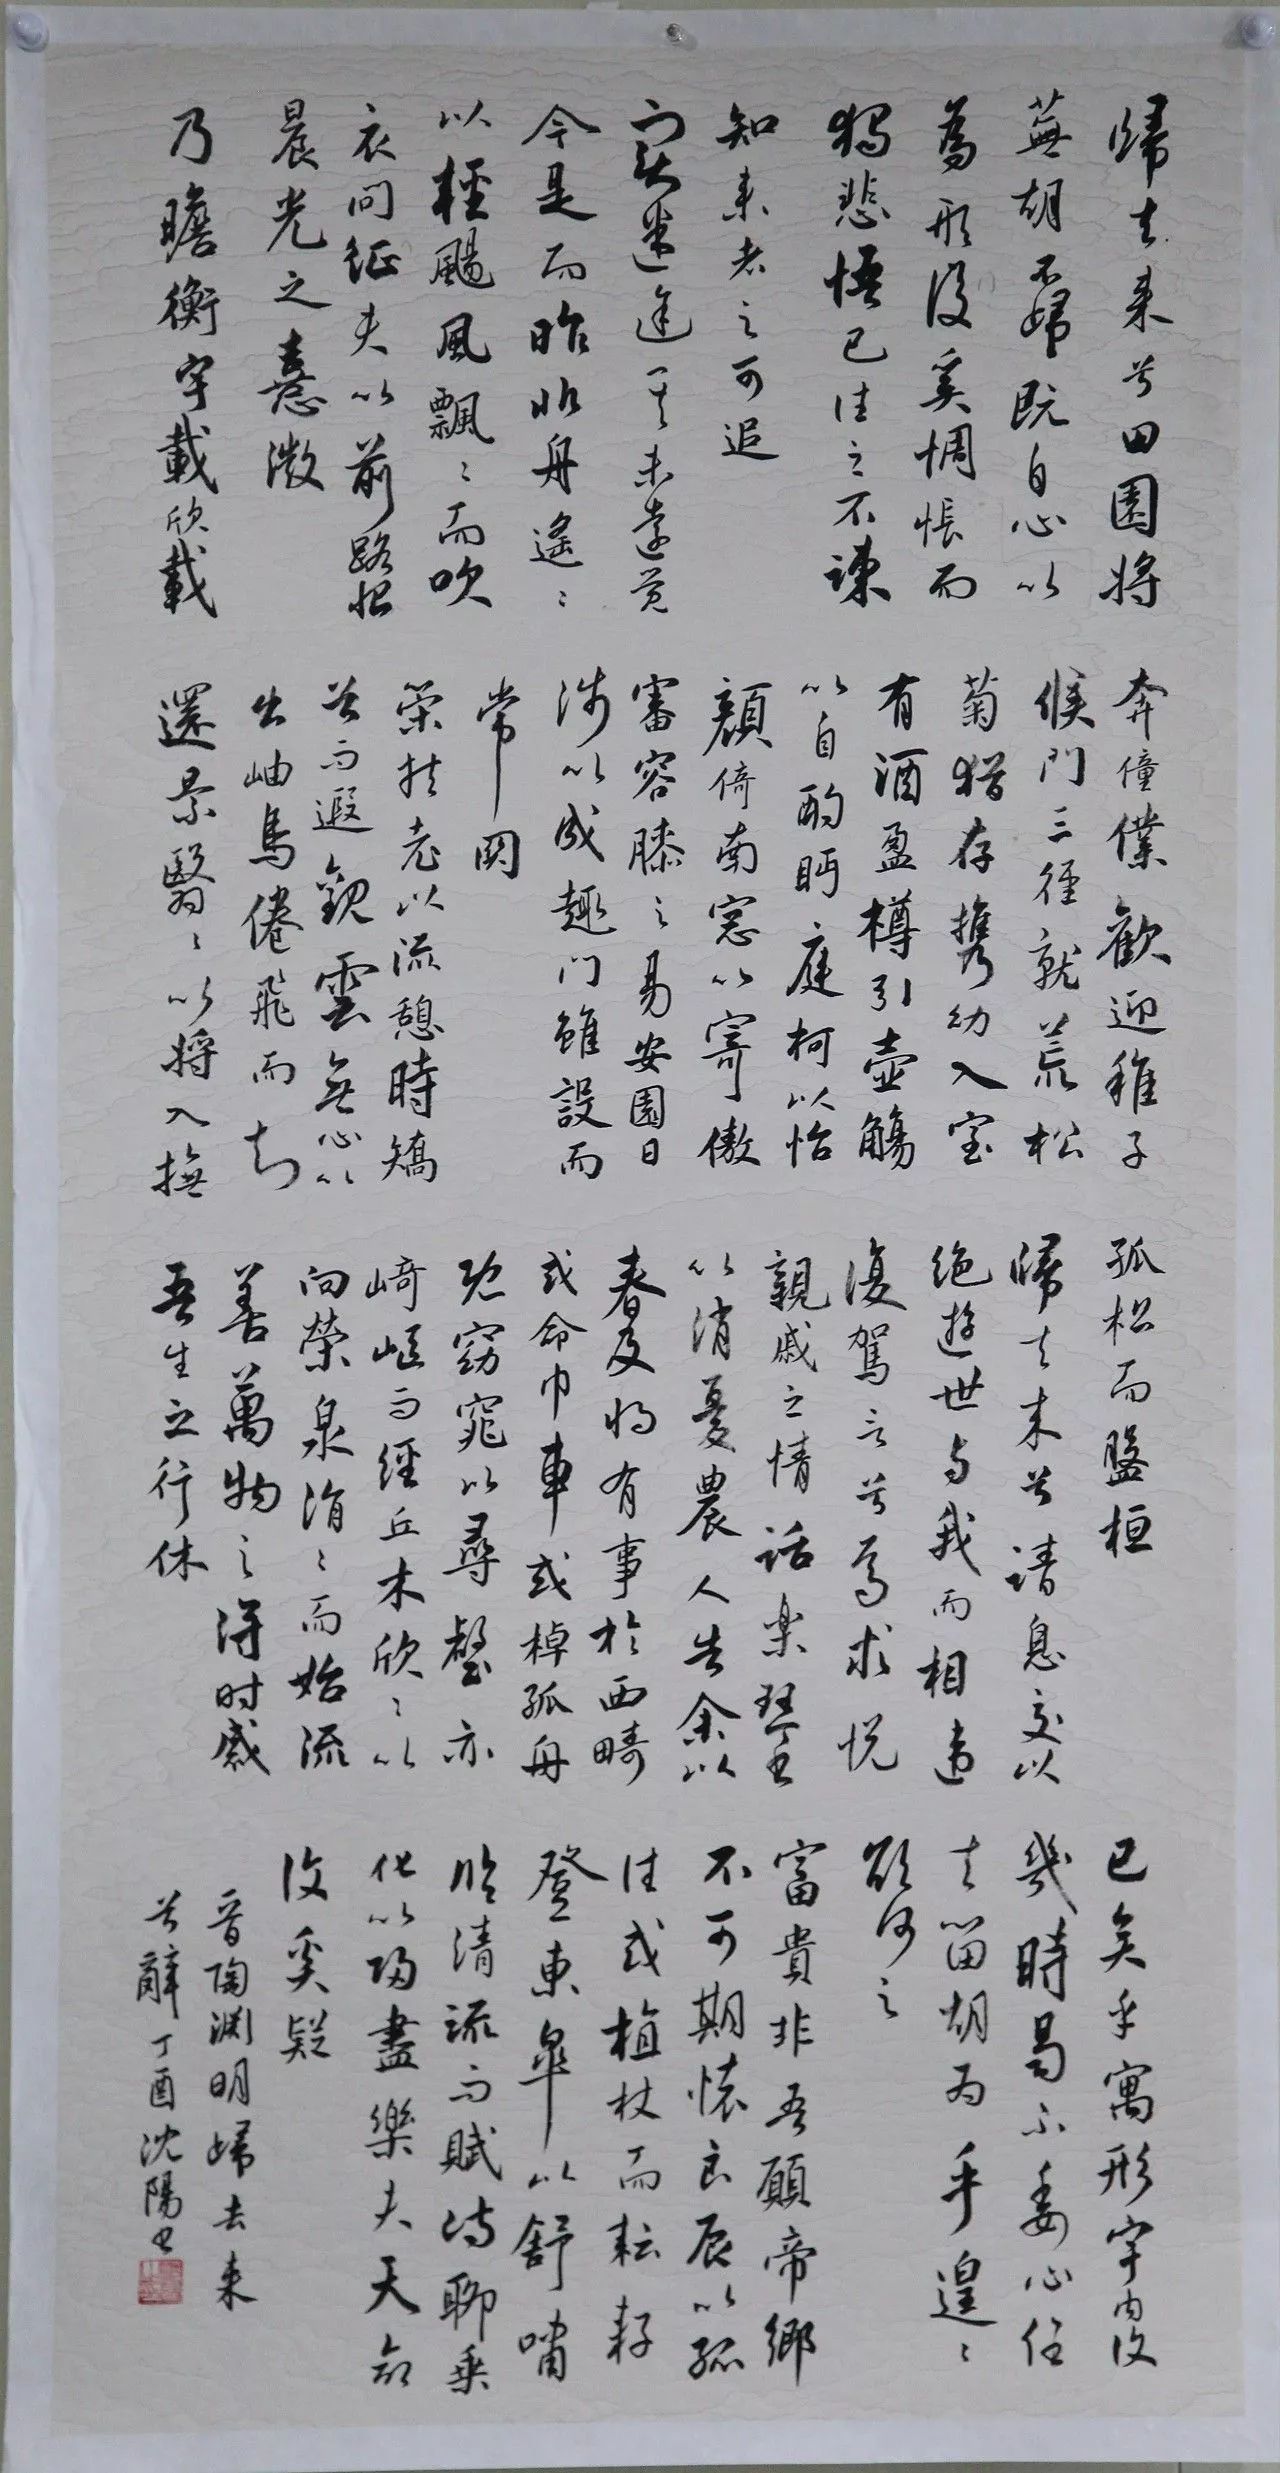 歸去来兮田園將
蕪胡不歸既自心以
為形役奚惆悵而
獨悲悟已往之不諫
知来者之可追
寔迷途其未遠覺
今是而昨非舟遙〻
以輕颺風飄〻而吹
衣問征夫以前路恨
晨光之熹微
乃瞻衡宇載欣載
奔僮僕歡迎稚子
候門三径就荒松
菊猶存携幼入室
有酒盈樽引壺觴
以自酌眄庭柯以怡
顏倚南窓以寄傲
審容膝之易安園日
涉以成趣門雖設而
常関
策扶老以流憩時矯
首而遐観雲無心以
出岫鳥倦飛而知
還景翳〻以將入撫
孤松而盤桓
歸去来兮請息交以
絶游世与我而相違
復駕言兮焉求悦
親戚之情話楽琴書
以消憂農人告余以
春及將有事於西疇
或命巾車或棹孤舟
既窈窕以尋壑亦
崎嶇而經丘木欣〻以
向榮泉涓〻而始流
善萬物之得时感
吾生之行休
已矣乎寓形宇内復
幾時曷不委心任
去留胡为乎遑〻
欲何之
富貴非吾願帝鄉
不可期懷良辰以孤
往或植杖而耘耔
登東皐以舒嘯
临清流而賦诗聊乗
化以归盡樂夫天命
復奚疑
晋陶渊明歸去来
兮辭丁酉沈陽书